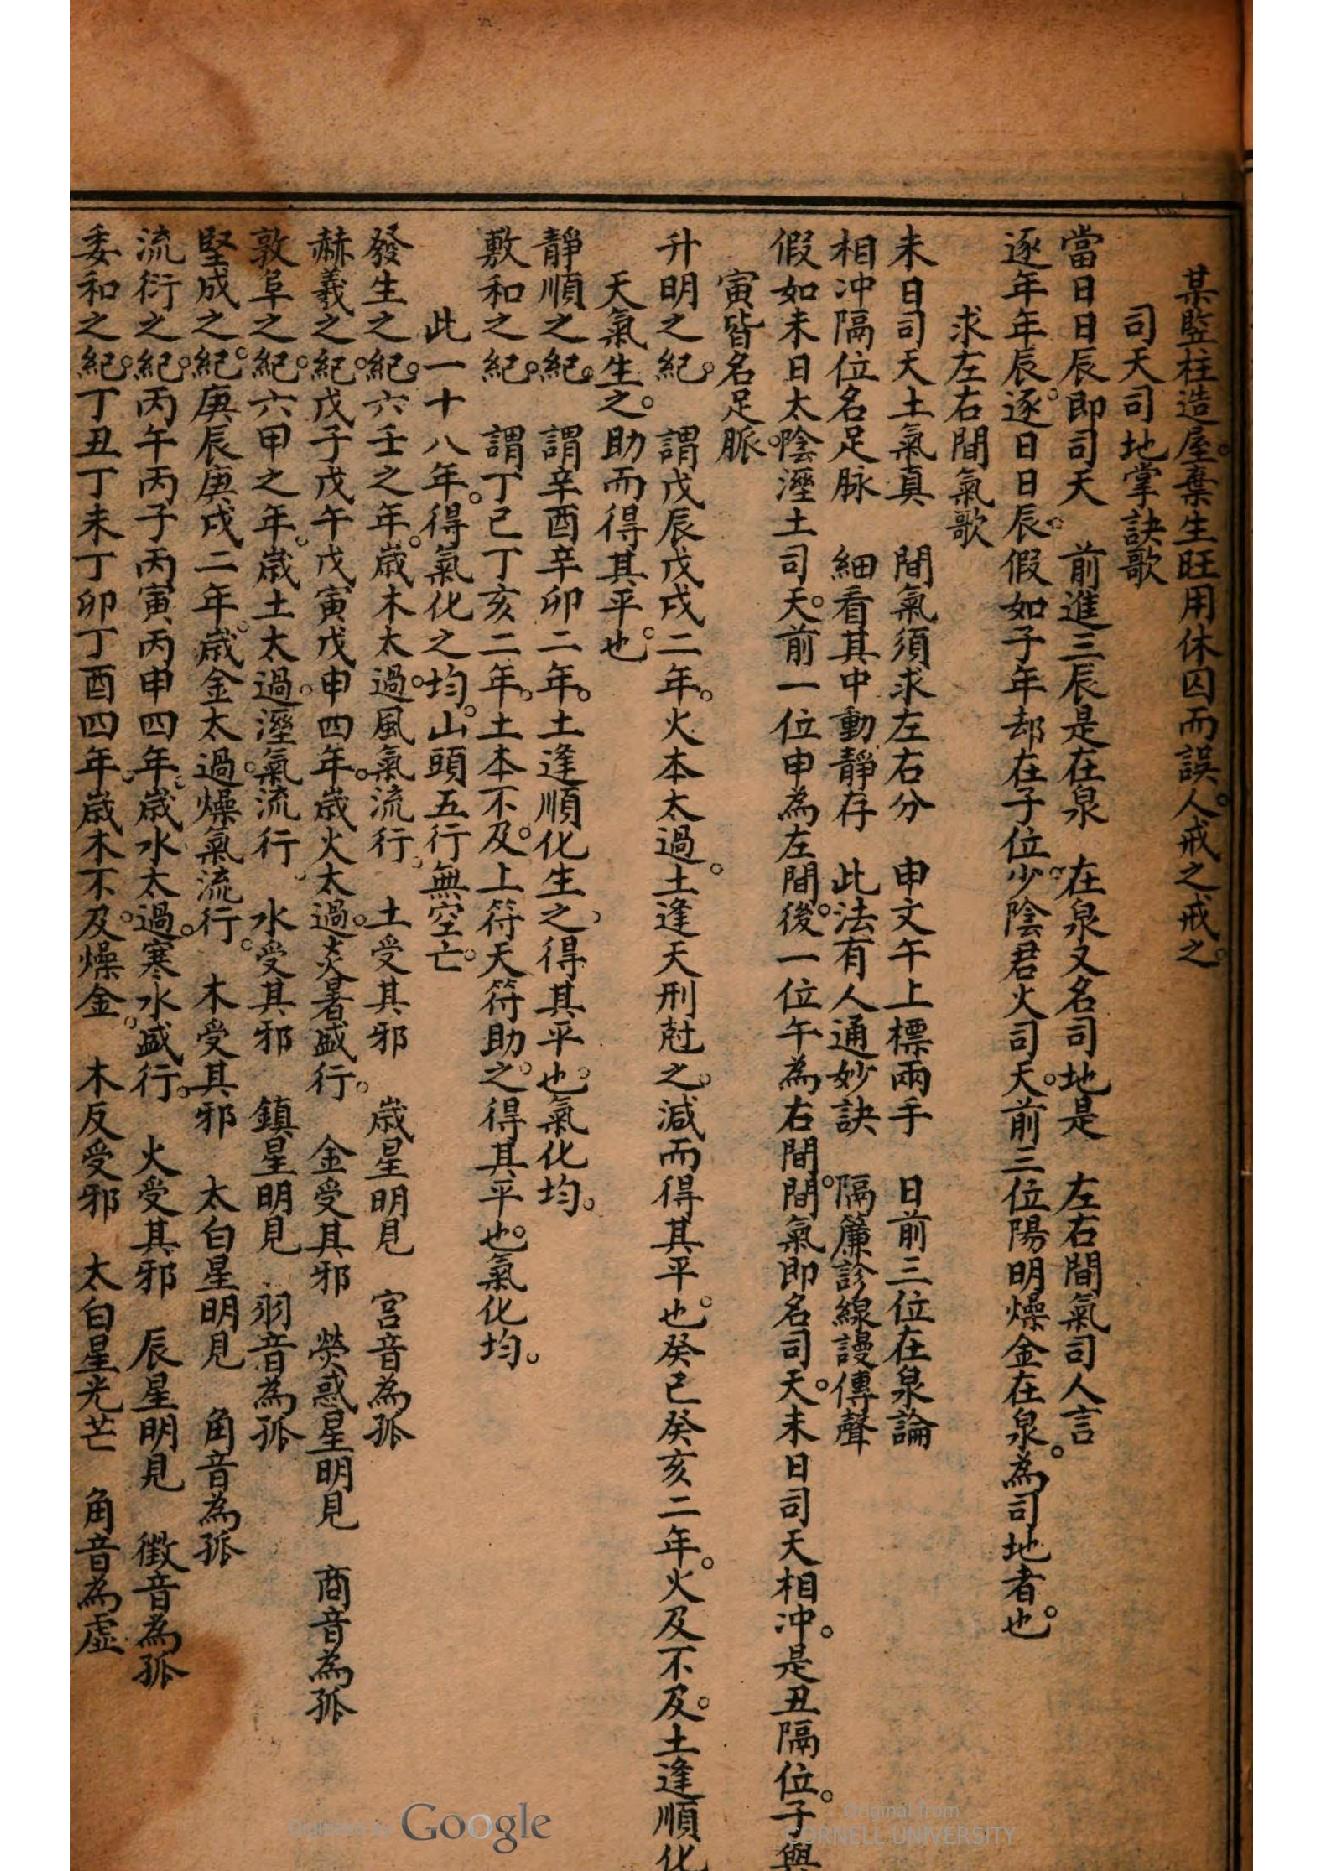 某竪柱造屋。棄生旺用休囚而誤。人戒之戒之。
司天司地掌訣歌
當日日辰即司天　前進三辰是在泉　在泉又名司地是　左右間氣司人言
逐年年辰逐日日辰。假如子年却在子位。少陰君火司天。前三位陽明燥金在泉。為司地者也。
求左右間氣歌
未日司天土氣真　間氣須求左右分　申文午上標兩手　日前三位在泉論
相冲隔位名足脉　細看其中動靜存　此法有人通妙訣　隔簾診線謾傳聲
假如未日太陰溼土司天。前一位申為左間。後一位午為右間。間氣即名司天。未日司天相冲。是丑隔位。子與
寅皆名足脈。
升明之紀。　謂戊辰戊戌二年。火本太過。土逢天刑尅之。減而得其平也。癸巳癸亥二年。火及不及。土逢順化
天氣生之。助而得其平也。
靜順之紀。　謂辛酉辛卯二年。土逢順化生之。得其平也。氣化均。
敷和之紀。　謂丁己丁亥二年。土本不及。上符天符助之。得其平也。氣化均。
此一十八年。得氣化之均。山頭五行無空亡。
發生之紀。六壬之年。歲木太過。風氣流行。　土受其邪　歲星明見　宮音為孤
赫羲之紀。戊子戊午戊寅戊申四年。歲火太過。炎暑盛行。　金受其邪　熒惑星明見　商音為孤
敦阜之紀。六甲之年。歲土太過。溼氣流行　水受其邪　鎮星明見　羽音為孤
堅成之紀。庚辰庚戌二年。歲金太過。燥氣流行。　木受其邪　太白星明見　角音為孤
流衍之紀。丙午丙子丙寅丙申四年。歲水太過。寒水盛行。　火受其邪　辰星明見　徵音為孤
委和之紀。丁丑丁未丁卯丁酉四年。歲木不及。燥金。　木反受邪　太白星光芒　角音為虛
Digitized by Google
Original from
CORNELL UNIVERSITY